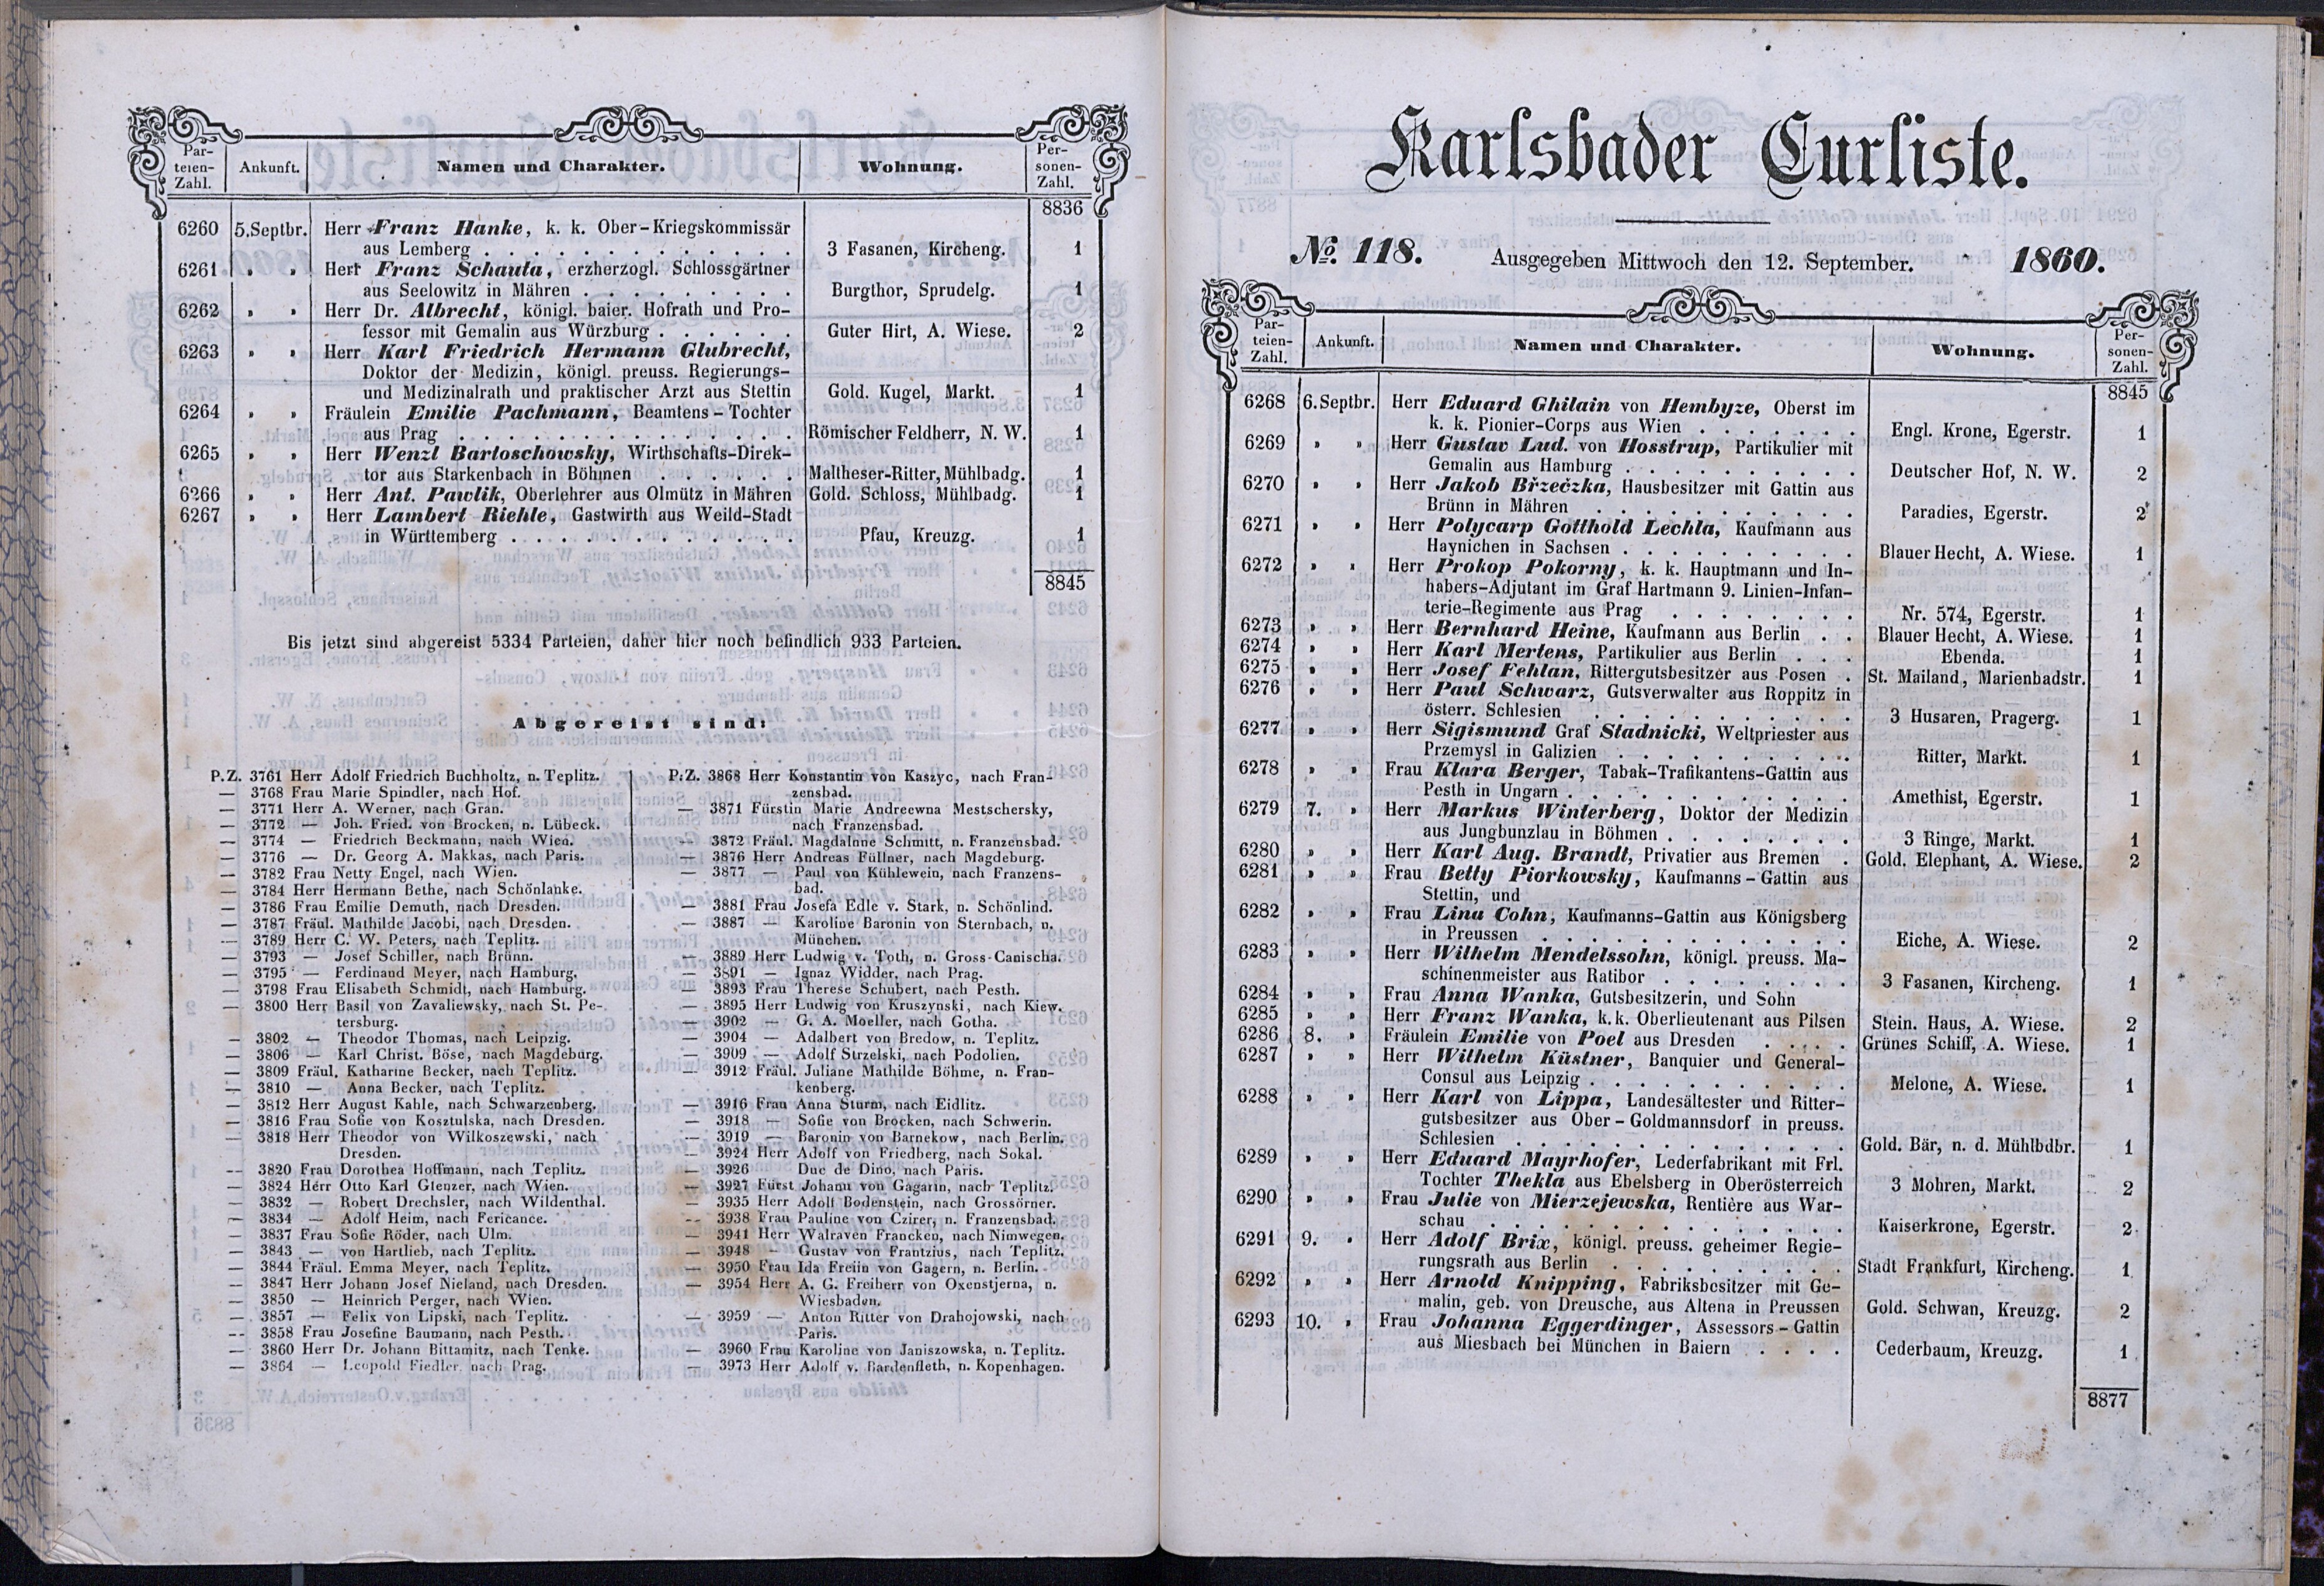 Par-
teien-
Zahl.
Ankunft.
Namen und Charakter.
Wohnung.
Per-
sonen-
Zahl.
8836
6260 5.Septbr. Herr Franz Hanke, k. k. Ober-Kriegskommissär
aus Lemberg . . . 3 Fasanen, Kircheng. 1
6261 » » Herr Franz Schauta, erzherzogl. Schlossgärtner
aus Seelowitz in Mähren . . . Burgthor, Sprudelg. 1
6262 » » Herr Dr. Albrecht, königl. baier. Hofrath und Pro-
fessor mit Gemalin aus Würzburg . . . Guter Hirt, A. Wiese. 2
6263 » » Herr Karl Friedrich Hermann Glubrecht,
Doktor der Medizin, königl. preuss. Regierungs-
und Medizinalrath und praktischer Arzt aus Stettin Gold. Kugel, Markt. 1
6264 » » Fräulein Emilie Pachmann, Beamtens-Tochter
aus Prag . . . Römischer Feldherr, N. W. 1
6265 » » Herr Wenzl Bartoschowsky, Wirthschafts-Direk-
tor aus Starkenbach in Böhmen . . . Maltheser-Ritter, Mühlbadg. 1
6266 » » Herr Ant. Pawlik, Oberlehrer aus Olmütz in Mähren Gold. Schloss, Mühlbadg. 1
6267 » » Herr Lambert Riehle, Gastwirth aus Weild-Stadt
in Württemberg . . . Pfau, Kreuzg. 1
8845
Bis jetzt sind abgereist 5334 Parteien, daher hier noch befindlich 933 Parteien.
Abgereist sind:
P.Z. 3761 Herr Adolf Friedrich Buchholtz, n. Teplitz.
— 3768 Frau Marie Spindler, nach Hof.
— 3771 Herr A. Werner, nach Gran.
— 3772 — Joh. Fried. von Brocken, n. Lübeck.
— 3774 — Friedrich Beckmann, nach Wien.
— 3776 — Dr. Georg A. Makkas, nach Paris.
— 3782 Frau Netty Engel, nach Wien.
— 3784 Herr Hermann Bethe, nach Schönlanke.
— 3786 Frau Emilie Demuth, nach Dresden.
— 3787 Fräul. Mathilde Jacobi, nach Dresden.
— 3789 Herr C. W. Peters, nach Teplitz.
— 3793 — Josef Schiller, nach Brünn.
— 3795 — Ferdinand Meyer, nach Hamburg.
— 3798 Frau Elisabeth Schmidt, nach Hamburg.
— 3800 Herr Basil von Zavaliewsky, nach St. Pe-
tersburg.
— 3802 — Theodor Thomas, nach Leipzig.
— 3806 — Karl Christ. Böse, nach Magdeburg.
— 3809 Fräul. Katharine Becker, nach Teplitz.
— 3810 — Anna Becker, nach Teplitz.
— 3812 Herr August Kahle, nach Schwarzenberg.
— 3816 Frau Sofie von Kosztulska, nach Dresden.
— 3818 Herr Theodor von Wilkoszewski, nach
Dresden.
— 3820 Frau Dorothea Hoffmann, nach Teplitz.
— 3824 Herr Otto Karl Glenzer, nach Wien.
— 3832 — Robert Drechsler, nach Wildenthal.
— 3834 — Adolf Heim, nach Fericance.
— 3837 Frau Sofie Röder, nach Ulm.
— 3843 — von Hartlieb, nach Teplitz.
— 3844 Fräul. Emma Meyer, nach Teplitz.
— 3847 Herr Johann Josef Nieland, nach Dresden.
— 3850 — Heinrich Perger, nach Wien.
— 3857 — Felix von Lipski, nach Teplitz.
— 3858 Frau Josefine Baumann, nach Pesth.
— 3860 Herr Dr. Johann Bittamitz, nach Tenke.
— 3864 — Leopold Fiedler, nach Prag.
P.Z. 3868 Herr Konstantin von Kaszyc, nach Fran-
zensbad.
— 3871 Fürstin Marie Andreewna Mestschersky,
nach Franzensbad.
— 3872 Fräul. Magdalnne Schmitt, n. Franzensbad.
— 3876 Herr Andreas Füllner, nach Magdeburg.
— 3877 — Paul von Kühlewein, nach Franzens-
bad.
— 3881 Frau Josefa Edle v. Stark, n. Schönlind.
— 3887 — Karoline Baronin von Sternbach, n.
München.
— 3889 Herr Ludwig v. Toth, n. Gross-Canischa.
— 3891 — Ignaz Widder, nach Prag.
— 3893 Frau Therese Schubert, nach Pesth.
— 3895 Herr Ludwig von Kruszynski, nach Kiew.
— 3902 — G. A. Moeller, nach Gotha.
— 3904 — Adalbert von Bredow, n. Teplitz.
— 3909 — Adolf Strzelski, nach Podolien.
— 3912 Fräul. Juliane Mathilde Böhme, n. Fran-
kenberg.
— 3916 Frau Anna Sturm, nach Eidlitz.
— 3918 — Sofie von Brocken, nach Schwerin.
— 3919 — Baronin von Barnekow, nach Berlin.
— 3924 Herr Adolf von Friedberg, nach Sokal.
— 3926 Duc de Dino, nach Paris.
— 3927 Fürst Johann von Gagarin, nach Teplitz.
— 3935 Herr Adolf Bodenstein, nach Grossörner.
— 3938 Frau Pauline von Czirer, n. Franzensbad.
— 3941 Herr Walraven Francken, nach Nimwegen.
— 3948 — Gustav von Frantzius, nach Teplitz.
— 3950 Frau Ida Freiin von Gagern, n. Berlin.
— 3954 Herr A. G. Freiherr von Oxenstjerna, n.
Wiesbaden.
— 3959 — Anton Ritter von Drahojowski, nach
Paris.
— 3960 Frau Karoline von Janiszowska, n. Teplitz.
— 3973 Herr Adolf v. Bardenfleth, n. Kopenhagen.
Karlsbader Curliste.
No. 118. Ausgegeben Mittwoch den 12. September. 1860.
Par-
teien-
Zahl.
Ankunft.
Namen und Charakter.
Wohnung.
Per-
sonen-
Zahl.
8845
6268 6.Septbr. Herr Eduard Ghilain von Hembyze, Oberst im
k. k. Pionier-Corps aus Wien . . . Engl. Krone, Egerstr. 1
6269 » » Herr Gustav Lud. von Hosstrup, Partikulier mit
Gemalin aus Hamburg . . . Deutscher Hof, N. W. 2
6270 » » Herr Jakob Břzečzka, Hausbesitzer mit Gattin aus
Brünn in Mähren . . . Paradies, Egerstr. 2
6271 » » Herr Polycarp Gotthold Lechla, Kaufmann aus
Haynichen in Sachsen . . . Blauer Hecht, A. Wiese. 1
6272 » » Herr Prokop Pokorny, k. k. Hauptmann und In-
habers-Adjutant im Graf Hartmann 9. Linien-Infan-
terie-Regimente aus Prag . . . Nr. 574, Egerstr. 1
6273 » » Herr Bernhard Heine, Kaufmann aus Berlin . . Blauer Hecht, A. Wiese. 1
6274 » » Herr Karl Mertens, Partikulier aus Berlin . . . Ebenda. 1
6275 » » Herr Josef Fehlan, Rittergutsbesitzer aus Posen . St. Mailand, Marienbadstr. 1
6276 » » Herr Paul Schwarz, Gutsverwalter aus Roppitz in
österr. Schlesien . . . 3 Husaren, Pragerg. 1
6277 » » Herr Sigismund Graf Stadnicki, Weltpriester aus
Przemysl in Galizien . . . Ritter, Markt. 1
6278 » » Frau Klara Berger, Tabak-Trafikantens-Gattin aus
Pesth in Ungarn . . . Amethist, Egerstr. 1
6279 7. » Herr Markus Winterberg, Doktor der Medizin
aus Jungbunzlau in Böhmen . . . 3 Ringe, Markt. 1
6280 » » Herr Karl Aug. Brandt, Privatier aus Bremen . Gold. Elephant, A. Wiese. 2
6281 » » Frau Betty Piorkowsky, Kaufmanns-Gattin aus
Stettin, und
6282 » » Frau Lina Cohn, Kaufmanns-Gattin aus Königsberg
in Preussen . . . Eiche, A. Wiese. 2
6283 » » Herr Wilhelm Mendelssohn, königl. preuss. Ma-
schinenmeister aus Ratibor . . . 3 Fasanen, Kircheng. 1
6284 » » Frau Anna Wanka, Gutsbesitzerin, und Sohn
6285 » » Herr Franz Wanka, k. k. Oberlieutenant aus Pilsen Stein. Haus, A. Wiese. 2
6286 8. » Fräulein Emilie von Poel aus Dresden . . . Grünes Schiff, A. Wiese. 1
6287 » » Herr Wilhelm Küstner, Banquier und General-
Consul aus Leipzig . . . Melone, A. Wiese. 1
6288 » » Herr Karl von Lippa, Landesältester und Ritter-
gutsbesitzer aus Ober-Goldmannsdorf in preuss.
Schlesien . . . Gold. Bär, n. d. Mühlbdbr. 1
6289 » » Herr Eduard Mayrhofer, Lederfabrikant mit Frl.
Tochter Thekla aus Ebelsberg in Oberösterreich 3 Mohren, Markt. 2
6290 » » Frau Julie von Mierzejewska, Rentière aus War-
schau . . . Kaiserkrone, Egerstr. 2
6291 9. » Herr Adolf Brix, königl. preuss. geheimer Regie-
rungsrath aus Berlin . . . Stadt Frankfurt, Kircheng. 1
6292 » » Herr Arnold Knipping, Fabriksbesitzer mit Ge-
malin, geb. von Dreusche, aus Altena in Preussen Gold. Schwan, Kreuzg. 2
6293 10. » Frau Johanna Eggerdinger, Assessors-Gattin
aus Miesbach bei München in Baiern . . . . Cederbaum, Kreuzg. 1
8877